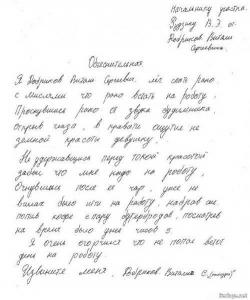 Начальнику участка
от
Добрикова Виталия
Сергеевича.
Объяснительная
Я Добриков Виталий Сергеевич. лёг спать рано
с мыслями что рано встать на работу.
Проснувшись рано от звука будильника
открыв глаза, в кровати ощутил не
земной красоты девушку!
Не удержавшись перед такой красотой
забыл что мне надо на работу.
Очнувшись после её чар, уже не
было идти на работу, набрав
попив кофе с пару бутербродов, посмотрев
на время было уже часов 5.
Я очень огорчился что не попал в этот
день на работу.
Извините меня. Добриков Виталий С.